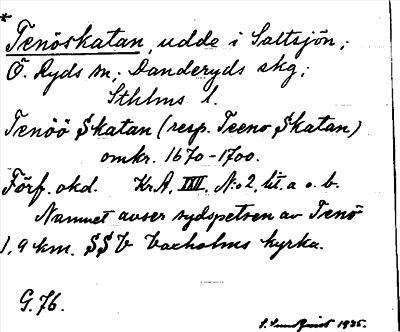 *
Tenöskatan, udde i Saltsjön;
Ö. Ryds sn; Danderyds skg;
Sthlms l.
Tenöö Skatan (resp. Teeno Skatan)
omkr. 1670-1700.
Förf. okd. Kr.A. XXVI, N:o 2, lit. a o. b.
Namnet avser sydspetsen av Tenö
1,9 km. SSV Vaxholms kyrka.
G. 76.
S. Sundqvist 1935.